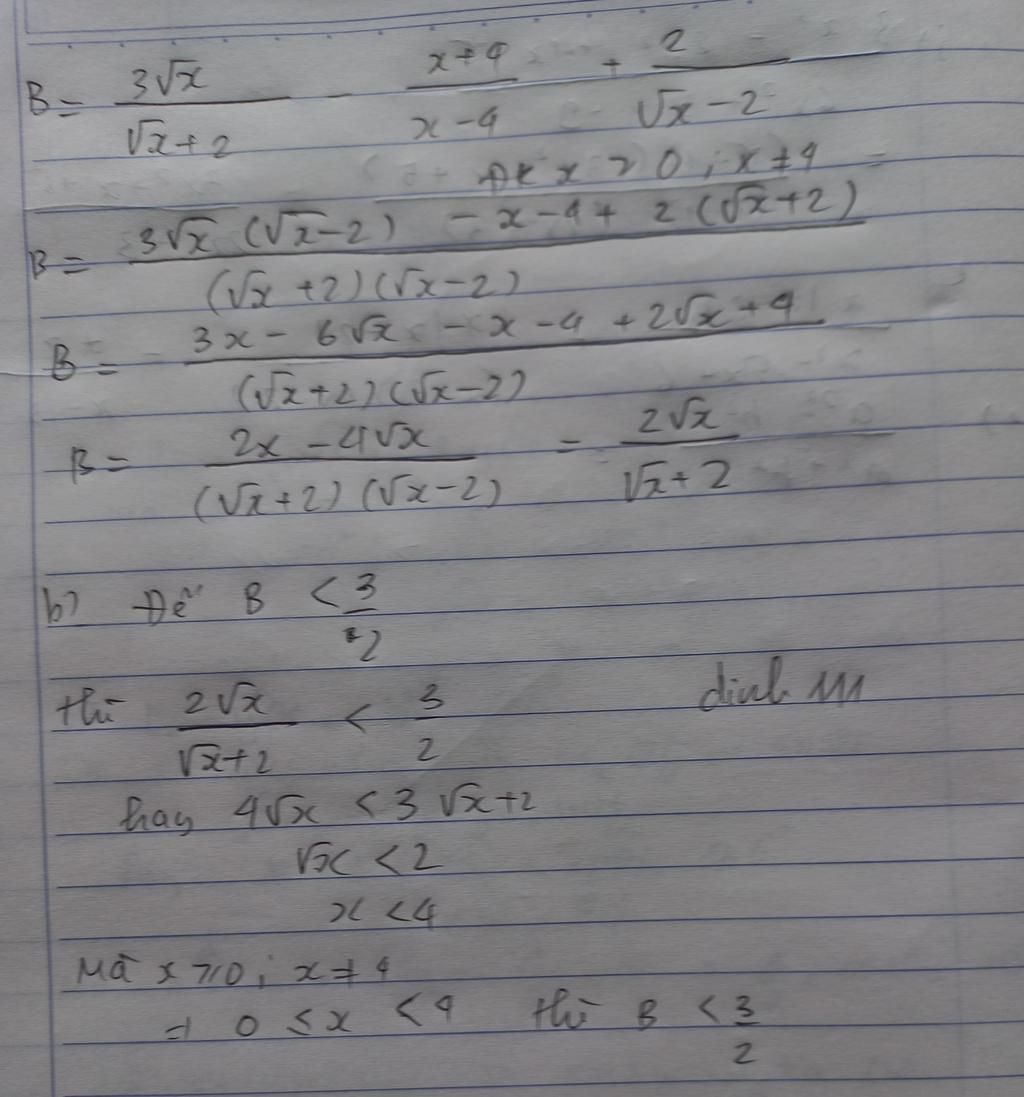 B = 3√x / (√x + 2) - (x + 4) / (x - 4) + 2 / (√x - 2)
ĐK x > 0 ; x ≠ 4
B = (3√x (√x - 2) - x - 4 + 2 (√x + 2)) / ((√x + 2) (√x - 2))
B = (3x - 6√x - x - 4 + 2√x + 4) / ((√x + 2) (√x - 2))
B = (2x - 4√x) / ((√x + 2) (√x - 2)) = 2√x / (√x + 2)
b) Để B < 3/2
thì 2√x / (√x + 2) < 3/2
hay 4√x < 3√x + 2
√x < 2
x < 4
Mà x ⩾ 0 ; x ≠ 4
⇒ 0 ≤ x < 4 thì B < 3/2